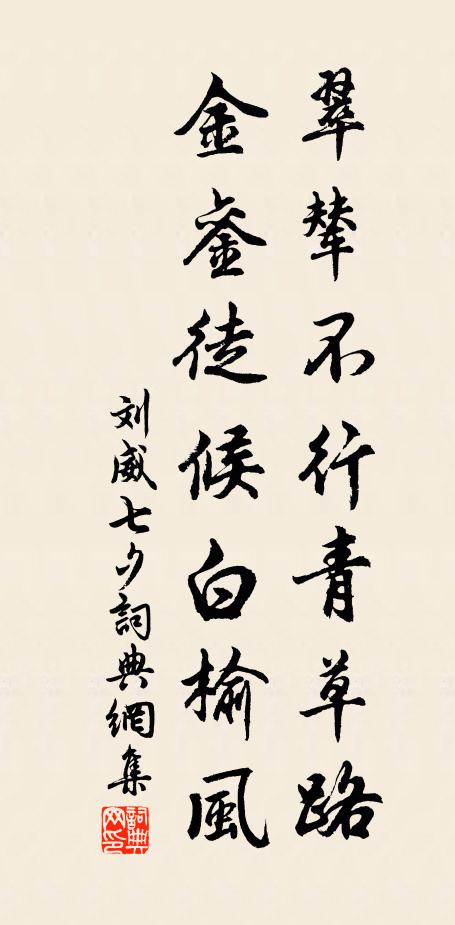 翠辇不行青草路
金銮徒候白榆風
刘威七夕詞典網集
詞典网印